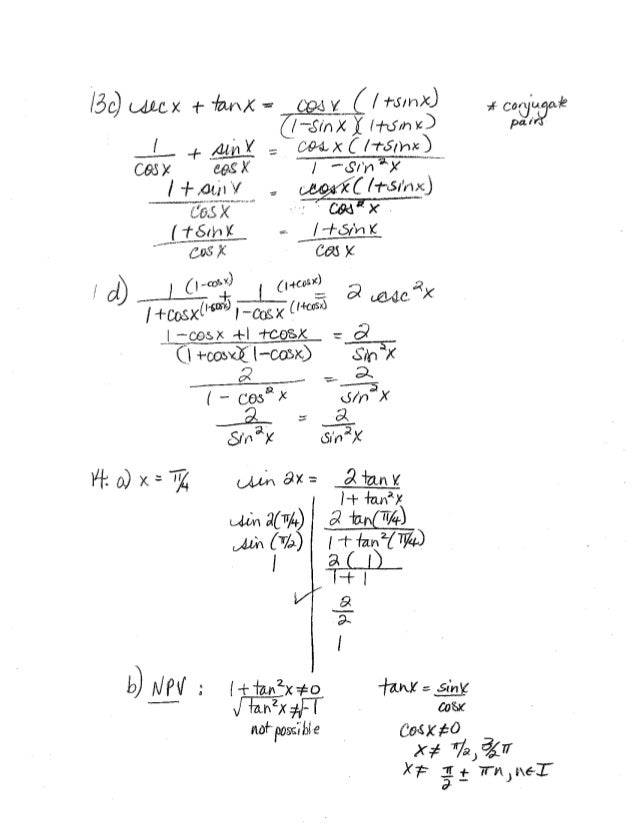 13c) sec x + tan x = cos x (1+sinx) / (1-sinx)(1+sinx) * conjugate pairs
1/cosx + sin x/cos x = cos x (1+sinx) / 1 - sin²x
1 + sin x / cos x = cosx(1+sinx) / cos²x
1+sinx / cos x = 1+sinx / cos x
d) 1 (1-cosx) / 1+cosx(1-cosx) + 1 (1+cosx) / 1-cosx (1+cosx) = 2 csc²x
1-cosx +1 +cosx / (1+cosx)(1-cosx) = 2 / sin²x
2 / 1 - cos²x = 2 / sin²x
2 / sin²x = 2 / sin²x
14. a) x = π/4 sin 2x = 2 tan x / 1+ tan²x
sin 2(π/4) 2 tan(π/4) / 1 + tan²(π/4)
sin (π/2) 2(1) / 1+1
1 2/2
✓ 1
b) NPV : 1 + tan²x ≠ 0 tanx = sinx / cosx
√tan²x ≠ √-1 cosx ≠ 0
not possible x ≠ π/2, 3/2π
x ≠ π/2 ± πn, n∈I